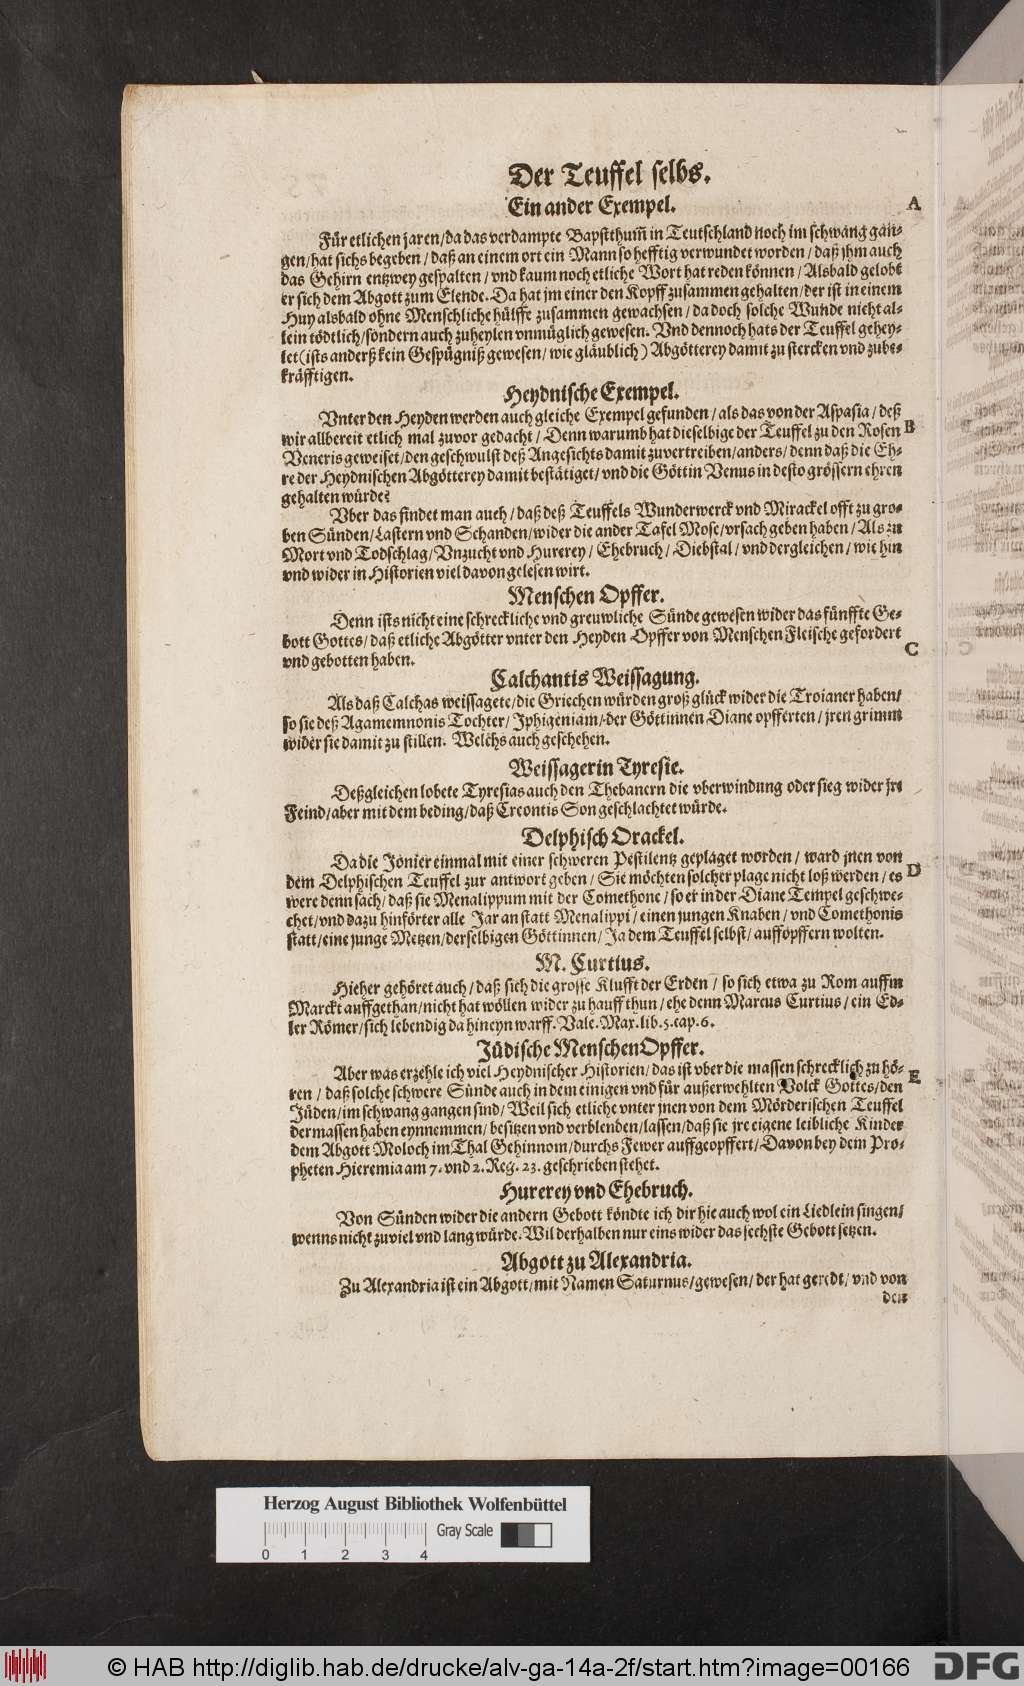 Der Teuffel selbs.
Ein ander Exempel.
A
Für etlichen jaren/da das verdampte Bapstthum̃ in Teutschland noch im schwang gan-
gen/hat sichs begeben/daß an einem ort ein Mann so hefftig verwundet worden/daß jhm auch
das Gehirn entzwey gespalten/vnd kaum noch etliche Wort hat reden können/Alsbald gelobt
er sich dem Abgott zum Elende. Da hat jm einer den Kopff zusammen gehalten/der ist in einem
Huy alsbald ohne Menschliche hülffe zusammen gewachsen/da doch solche Wunde nicht al-
lein tödtlich/sondern auch zuheylen vnmüglich gewesen. Vnd dennoch hats der Teuffel gehey-
let(ists anderß kein Gespügniß gewesen/wie gläublich) Abgötterey damit zu stercken vnd zube-
kräfftigen.
Heydnische Exempel.
Vnter den Heyden werden auch gleiche Exempel gefunden/als das von der Aspasia/deß
wir allbereit etlich mal zuvor gedacht/Denn warumb hat dieselbige der Teuffel zu den Rosen
B
Veneris geweiset/den geschwulst deß Angesichts damit zuvertreiben/anders/denn daß die Eh-
re der Heydnischen Abgötterey damit bestätiget/vnd die Göttin Venus in desto grössern ehren
gehalten würde?
Vber das findet man auch/daß deß Teuffels Wunderwerck vnd Mirackel offt zu gro-
ben Sünden/Lastern vnd Schanden/wider die ander Tafel Mose/vrsach geben haben/Als zu
Mort vnd Todschlag/Vnzucht vnd Hurerey/Ehebruch/Diebstal/vnd dergleichen/wie hin
vnd wider in Historien viel davon gelesen wirt.
Menschen Opffer.
Denn ists nicht eine schreckliche vnd greuwliche Sünde gewesen wider das fünffte Ge-
bott Gottes/daß etliche Abgötter vnter den Heyden Opffer von Menschen Fleische gefordert
C
vnd gebotten haben.
Calchantis Weissagung.
Als daß Calchas weissagete/die Griechen würden groß glück wider die Troianer haben/
so sie deß Agamemnonis Tochter/Jphigeniam/der Göttinnen Diane opfferten/jren grimm
wider sie damit zu stillen. Welchs auch geschehen.
Weissagerin Tyresie.
Deßgleichen lobete Tyresias auch den Thebanern die vberwindung oder sieg wider jre
Feind/aber mit dem beding/daß Creontis Son geschlachtet würde.
Delphisch Orackel.
Da die Jonier einmal mit einer schweren Pestilentz geplaget worden/ward jnen von
D
dem Delphischen Teuffel zur antwort geben/Sie möchten solcher plage nicht loß werden/es
were denn sach/daß sie Menalippum mit der Comethone/so er in der Diane Tempel geschwe-
chet/vnd dazu hinförter alle Jar an statt Menalippi/einen jungen Knaben/vnd Comethonis
statt/eine junge Metzen/derselbigen Göttinnen/Ja dem Teuffel selbst/auffopffern wolten.
M. Curtius.
Hieher gehöret auch/daß sich die grosse Klufft der Erden/so sich etwa zu Rom auffm
Marckt auffgethan/nicht hat wöllen wider zu hauff thun/ehe denn Marcus Curtius/ein Ed-
ler Römer/sich lebendig da hineyn warff. Vale. Mar. lib. 5. cap. 6.
Jüdische Menschen Opffer.
Aber was erzehle ich viel Heydnischer Historien/das ist vber die massen schrecklich zu hö-
E
ren/daß solche schwere Sünde auch in dem einigen vnd für außerwehlten Volck Gottes/den
Jüden/im schwang gangen sind/Weil sich etliche vnter jnen von dem Mörderischen Teuffel
dermassen haben eynnemmen/besitzen vnd verblenden/lassen/daß sie jre eigene leibliche Kinder
dem Abgott Moloch im Thal Gehinnom/durchs Fewer auffgeopffert/Davon bey dem Pro-
pheten Hieremia am 7. vnd 2. Reg. 23. geschrieben stehet.
Hurerey vnd Ehebruch.
Von Sünden wider die andern Gebott köndte ich dir hie auch wol ein Liedlein singen/
wenns nicht zuviel vnd lang würde. Wil derhalben nur eins wider das sechste Gebott setzen.
Abgott zu Alexandria.
Zu Alexandria ist ein Abgott/mit Namen Saturnus/gewesen/der hat geredt/vnd von
den
Herzog August Bibliothek Wolfenbüttel
Gray Scale
0 1 2 3 4
© HAB http://diglib.hab.de/drucke/alv-ga-14a-2f/start.htm?image=00166
DFG